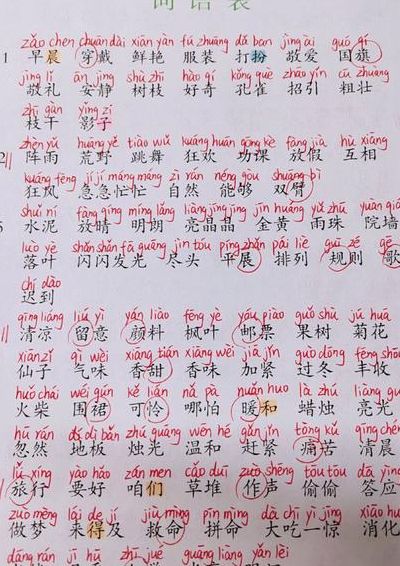 词语表
zǎo chen chuān dài xiān yàn fú zhuāng dǎ ban jìng ài guó qí
1 早晨 穿戴 鲜艳 服装 打扮 敬爱 国旗
jìng lǐ ān jìng shù zhī hào qí kǒng què zhāo yǐn cū zhuàng
敬礼 安静 树枝 好奇 孔雀 招引 粗壮
zhī gàn yǐng zi
枝干 影子
zhèn yǔ huāng yě tiào wǔ kuáng huān gōng kè fàng jià hù xiāng
2 阵雨 荒野 跳舞 狂欢 功课 放假 互相
kuáng fēng jí jí máng máng zì rán néng gòu shuāng bì
狂风 急急忙忙 自然 能够 双臂
shuǐ ní fàng qíng míng lǎng liàng jīng jīng jīn huáng yǔ zhū yuàn
5 水泥 放晴 明朗 亮晶晶 金黄 雨珠 院墙
luò yè shǎn shǎn fā guāng jìn tóu píng zhǎn pái liè guī zé gē
落叶 闪闪发光 尽头 平展 排列 规则 歌
chí dào
迟到
qīng liáng liú yì yán liào fēng yè yóu piào guǒ shù jú huā
清凉 留意 颜料 枫叶 邮票 果树 菊花
xiān zǐ qì wèi xiāng tián xiāng wèi jiā jǐn guò dōng fēng shōu
仙子 气味 香甜 香味 加紧 过冬 丰收
huǒ chái wéi qún kě lián nǎ pà nuǎn huo là zhú liàng guāng
火柴 围裙 可怜 哪怕 暖和 蜡烛 亮光
hū rán dì bǎn zhú guāng wēn hé gǎn jǐn tòng kǔ qīng chén
忽然 地板 烛光 温和 赶紧 痛苦 清晨
lǚ xíng yào hǎo zán men cǎo duī zuò shēng tōu tōu dā yìng
旅行 要好 咱们 草堆 作声 偷偷 答应
zuò mèng lái de jí jiù mìng pīn mìng dà chī yì jīng xiāo huà
做梦 来得及 救命 拼命 大吃一惊 消化
dāng rán jī hū zhī jué guāng liàng yǎn lèi